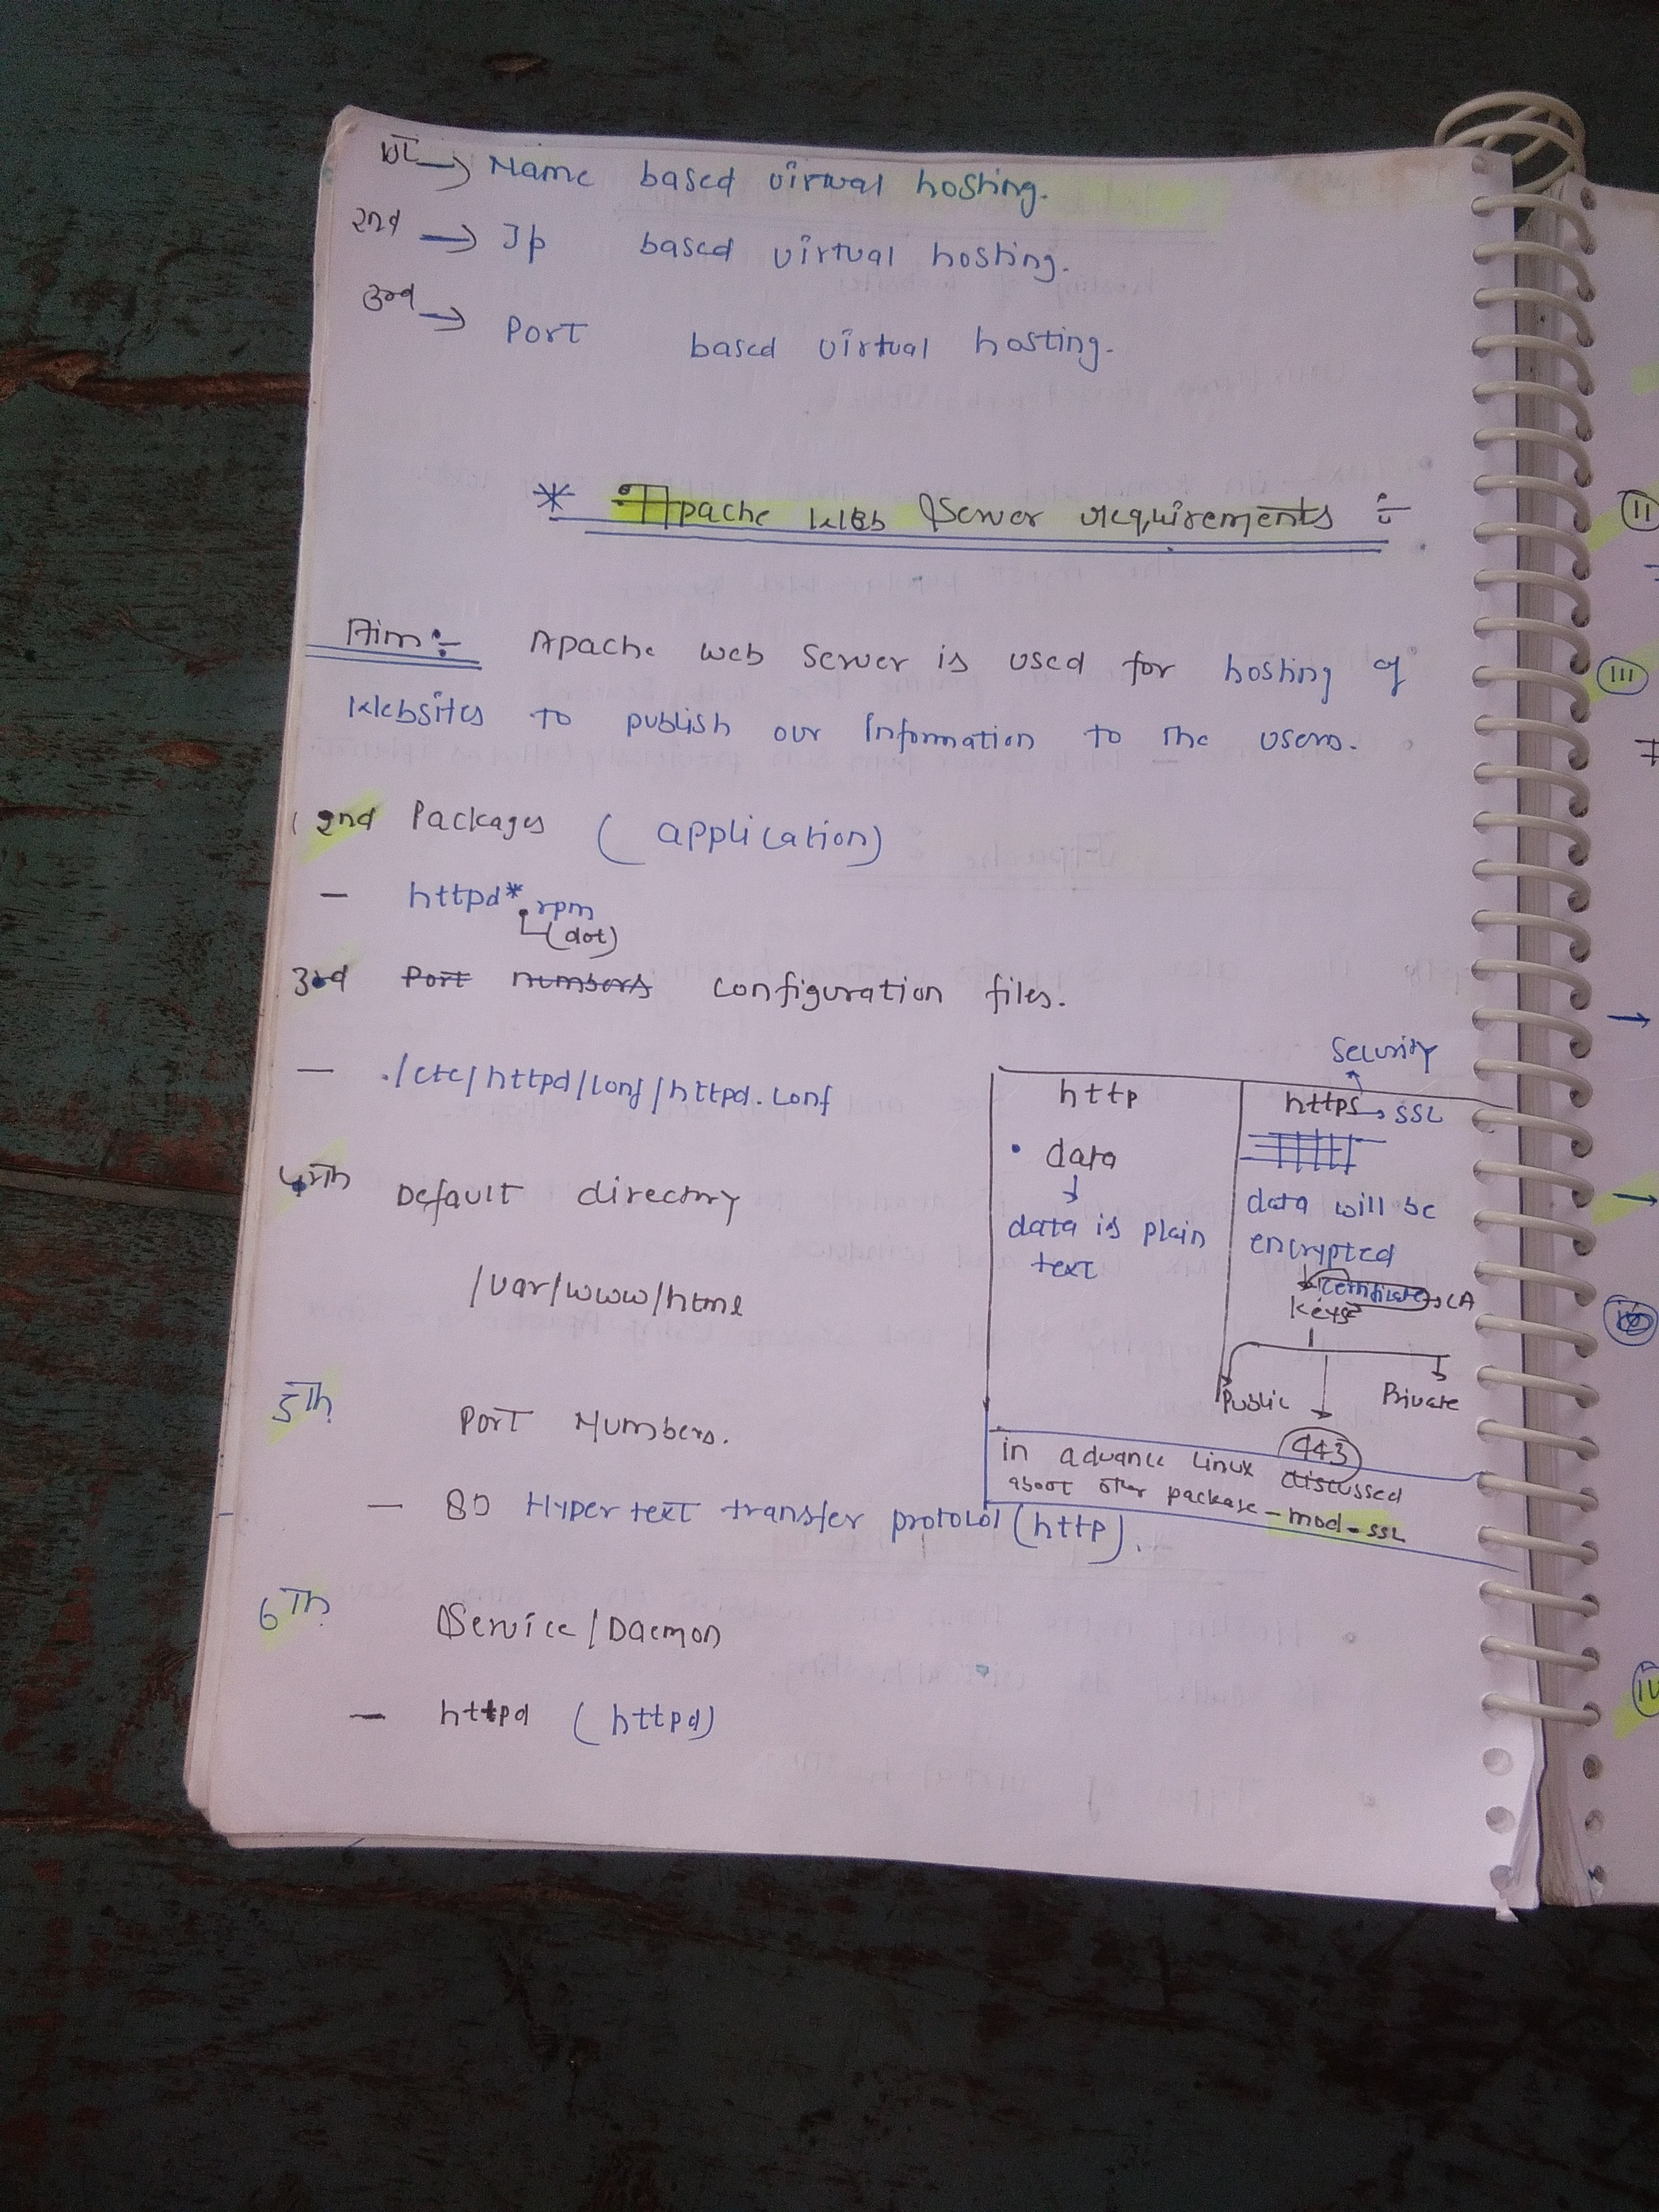 1st → Name based virtual hosting.
2nd → Ip based virtual hosting.
3rd → Port based virtual hosting.
* Apache WEb Server requirements :-
Aim :- Apache web server is used for hosting of
Websites to publish our Information to the users.
2nd Packages ( application)
- httpd*.rpm
(dot)
3rd Port numbers configuration files.
- ./etc/httpd/conf/httpd.conf
4th Default directory
/var/www/html
5th Port Numbers.
- 80 Hyper text transfer protocol (http).
6th Service/Daemon
- httpd ( httpd)
Security
http
https → SSL
• data
↓
data is plain
text
data will be
encrypted
certificate → CA
keys
Public
Private
443
in advance linux discussed
about other package - mod-ssl
II
III
IV